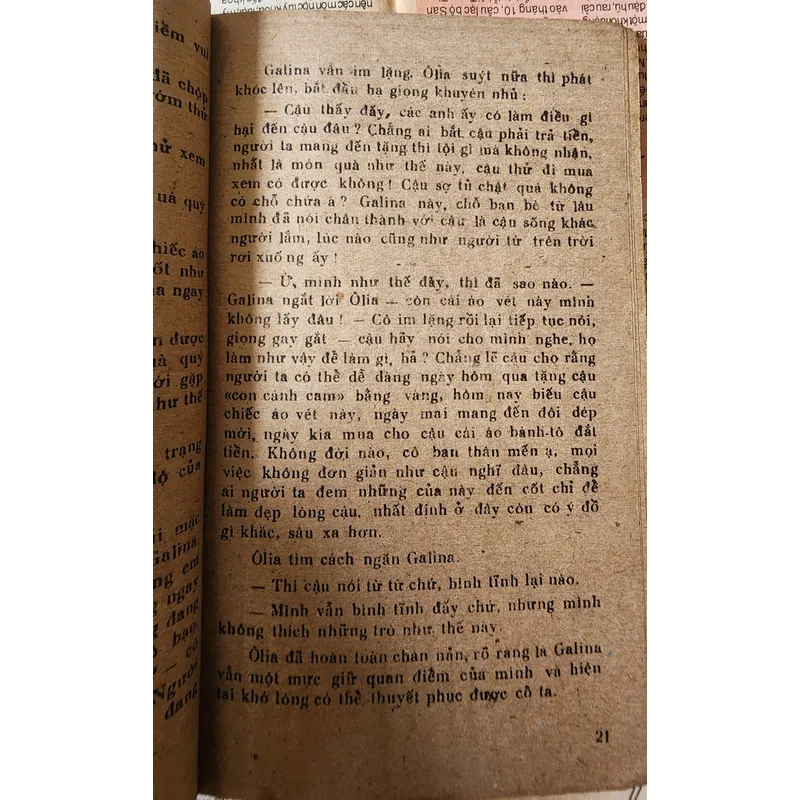 nền các môn học tùy khoa, hoặc, my
vào tháng 10, câu lạc bộ San
đậu hũ, rau cải
iềm vui
đã chộp
ườm thử
ử xem
uà quý
hiếc áo
ốt như
a ngay
n được
uà quý
ới gặp
hư thế
trạng
độ của
ải mặc
Galina.
ng em
ngay
đang
bạo.
– cô
Người
đang
Galina vẫn im lặng. Ôlia suýt nữa thì phát
khóc lên, bắt đầu hạ giọng khuyên nhủ :
— Cậu thấy đấy, các anh ấy có làm điều gì
hại đến cậu đâu ? Chẳng ai bắt cậu phải trả tiền,
người ta mang đến tặng thì tội gì mà không nhận,
nhất là món quà như thế này, cậu thử đi mua
xem có được không ! Cậu sợ tủ chật quá không
có chỗ chứa à ? Galina này, chỗ bạn bè từ lâu
mình đã nói chân thành với cậu là cậu sống khác
người lắm, lúc nào cũng như người từ trên trời
rơi xuố ng ấy !
— Ừ, mình như thế đấy, thì đã sao nào. —
Galina ngắt lời Ôlia — còn cái áo vét này mình
không lấy đâu ! — Cô im lặng rồi lại tiếp tục nói,
giọng gay gắt — cậu hãy nói cho mình nghe, họ
làm như vậy để làm gì, hả ? Chẳng lẽ cậu cho rằng
người ta có thể dễ dàng ngày hôm qua tặng cậu
«con cánh cam» bằng vàng, hôm nay biếu cậu
chiếc áo vét này, ngày mai mang đến đôi dép
mới, ngày kia mua cho cậu cái áo bành-tô đắt
tiền. Không đời nào, cô bạn thân mến ạ, mọi
việc không đơn giản như cậu nghĩ đâu, chẳng
ai người ta đem những của này đến cốt chỉ để
làm đẹp lòng cậu, nhất định ở đây còn có ý đồ
gì khác, sâu xa hơn.
Ôlia tìm cách ngăn Galina.
— Thì cậu nói từ từ chứ, bình tĩnh lại nào.
— Mình vẫn bình tĩnh đấy chứ, nhưng mình
không thích những trò như thế này.
Ôlia đã hoàn toàn chán nản, rõ ràng là Galina
vẫn một mực giữ quan điểm của mình và hiện
tại khó lòng có thể thuyết phục được cô ta.
21